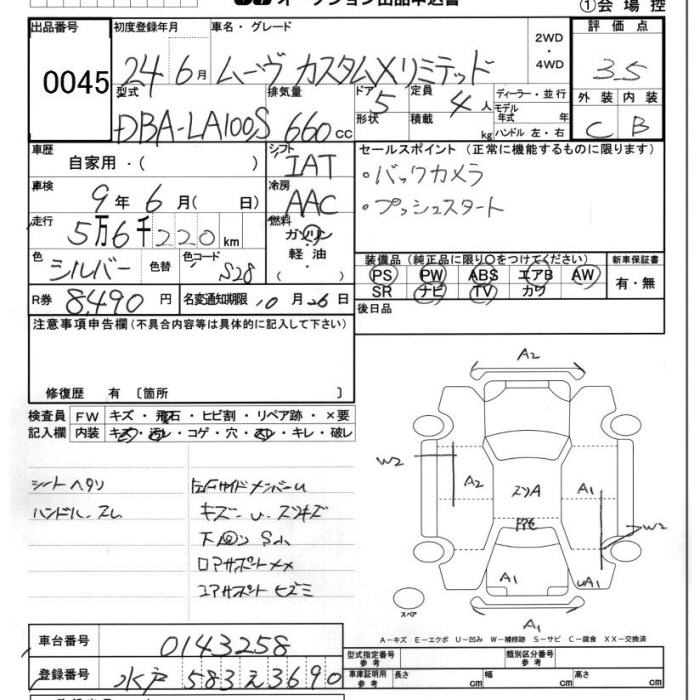 オークション出品申込書
①会場控
出品番号 0045
初度登録年月 24年 6月
車名・グレード ムーヴ カスタムXリミテッド
2WD・4WD
評価点 3.5
外装 C 内装 B
型式 DBA-LA100S
排気量 660cc
ドア 5 形状
定員 4人 積載 kg
ディーラー・並行
モデル年式 年
ハンドル 左・右
車歴 自家用・( )
シフト IAT
セールスポイント (正常に機能するものに限ります)
・バックカメラ
・プッシュスタート
車検 9年 6月( 日)
冷房 AAC
走行 5万6千220km
燃料 ガソリン・軽油 ( )
色 シルバー 色替
色コード S28
装備品 (純正品に限り○をつけてください)
新車保証書
PS PW ABS エアB AW
SR ナビ TV カワ
有・無
R券 8,490円
名変通知期限 10月26日
後日品
注意事項申告欄 (不具合内容等は具体的に記入して下さい)
修復歴 有 〔箇所 〕
検査員記入欄
FW キズ・飛石・ヒビ割・リペア跡・×要
内装 キズ・汚レ・コゲ・穴・スレ・キレ・破レ
シートヘタリ
ハンドル スレ
キズ
A2
W2
A2
A1
W2
A1
UA1
スペア
A1
A-キズ E-エクボ U-凹み W-補修跡 S-サビ C-腐食 XX-交換済
車台番号 0143258
登録番号 水戸 583 え 3690
型式指定番号 参考
類別区分番号 参考
車庫証明用 参考
長さ cm 幅 cm 高さ cm